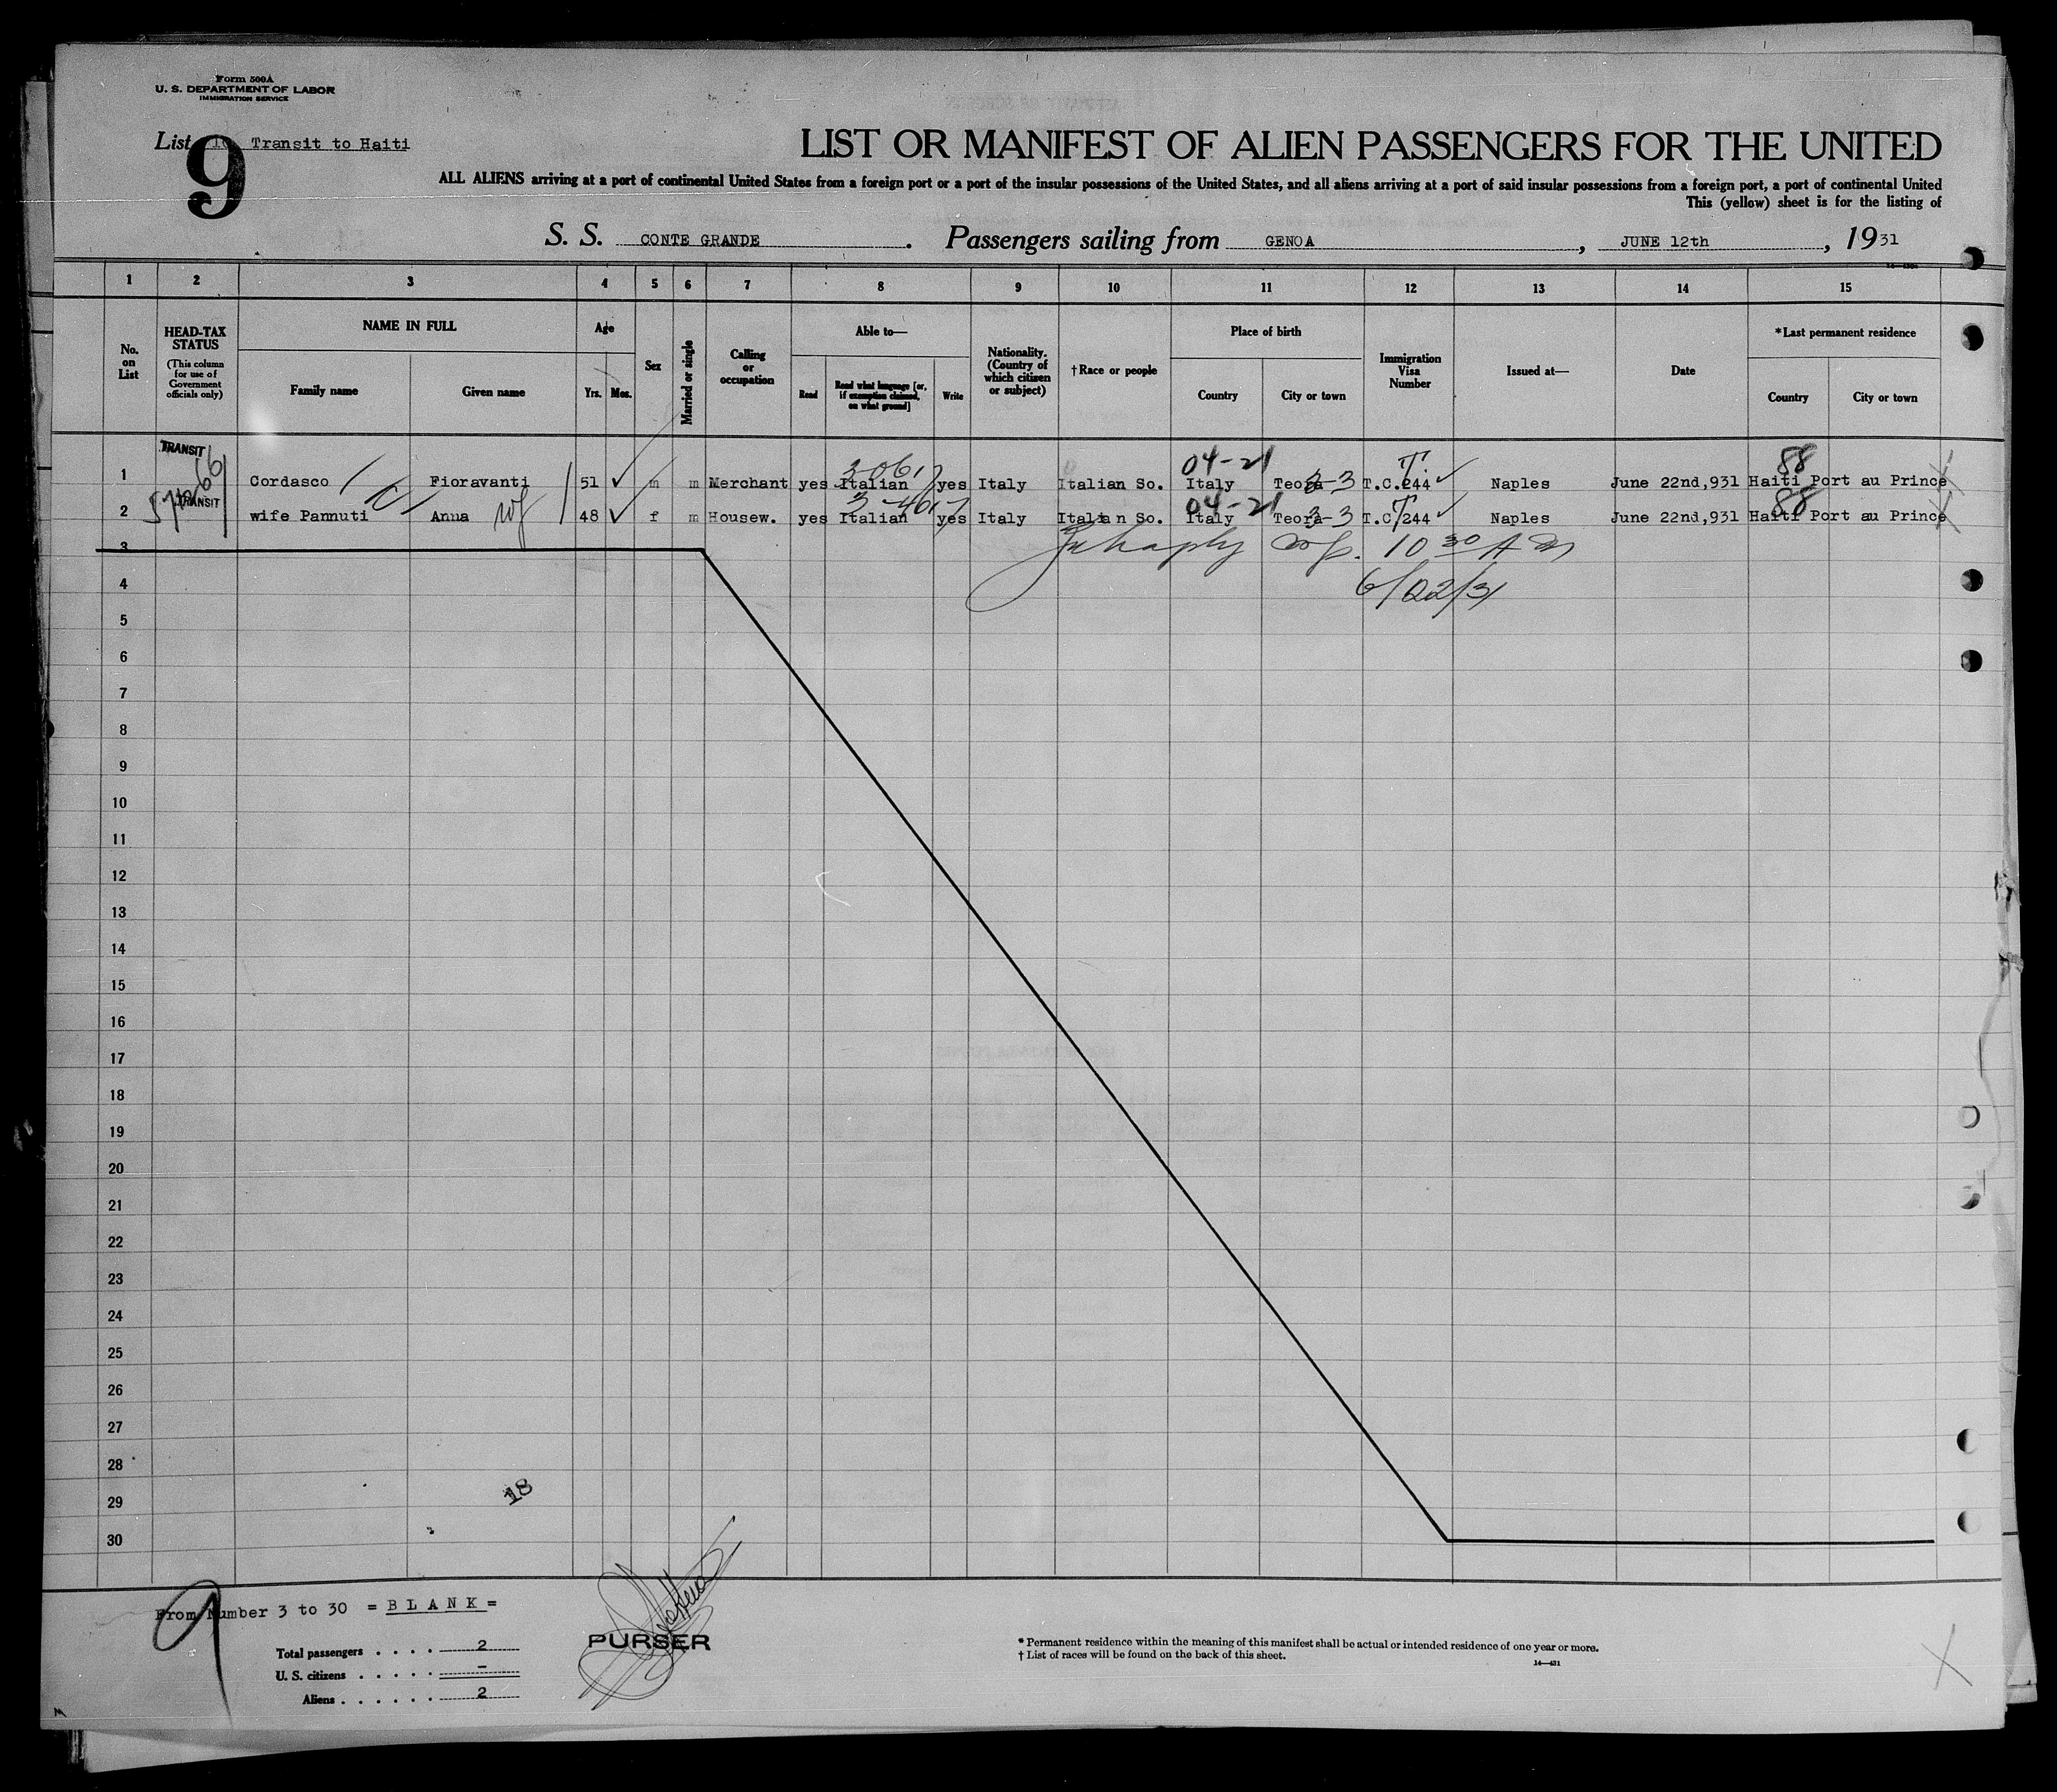 Form 500A
U. S. DEPARTMENT OF LABOR
IMMIGRATION SERVICE
List 10 Transit to Haiti
9
LIST OR MANIFEST OF ALIEN PASSENGERS FOR THE UNITED
ALL ALIENS arriving at a port of continental United States from a foreign port or a port of the insular possessions of the United States, and all aliens arriving at a port of said insular possessions from a foreign port, a port of continental United
This (yellow) sheet is for the listing of
S. S. CONTE GRANDE. Passengers sailing from GENOA, JUNE 12th, 1931
1 2 3 4 5 6 7 8 9 10 11 12 13 14 15
No. on List
HEAD-TAX STATUS
(This column for use of Government officials only)
NAME IN FULL
Family name Given name
Age
Yrs. Mos.
Sex
Married or single
Calling or occupation
Able to—
Read
Read what language [or, if exemption claimed, on what ground]
Write
Nationality. (Country of which citizen or subject)
†Race or people
Place of birth
Country City or town
Immigration Visa Number
Issued at—
Date
*Last permanent residence
Country City or town
TRANSIT 04-21 T 88
1 Cordasco Fioravanti 51 ✓ m m Merchant yes Italian yes Italy Italian So. Italy Teora 3-3 T.C.244 ✓ Naples June 22nd,931 Haiti Port au Prince
TRANSIT 04-21 T 88
2 wife Pannuti Anna wf 48 ✓ f m Housew. yes Italian yes Italy Italian So. Italy Teora 3-3 T.C.244 ✓ Naples June 22nd,931 Haiti Port au Prince
3
10 30 AM
4
6/22/31
5
6
7
8
9
10
11
12
13
14
15
16
17
18
19
20
21
22
23
24
25
26
27
28
29
18
30
9
From Number 3 to 30 = BLANK=
Total passengers . . . . 2
U. S. citizens . . . . . –
Aliens . . . . . . 2
PURSER
* Permanent residence within the meaning of this manifest shall be actual or intended residence of one year or more.
† List of races will be found on the back of this sheet.
14—431